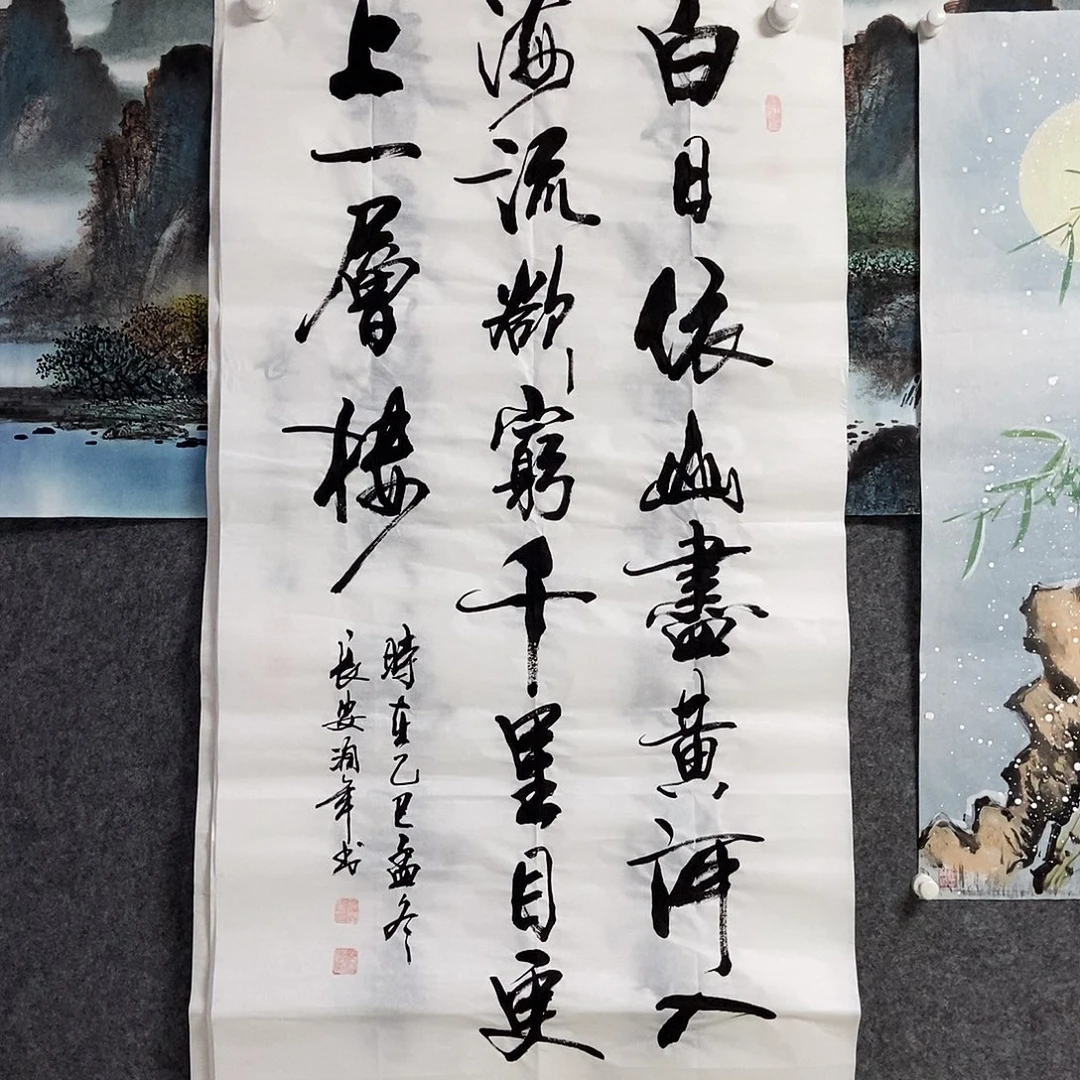 白日依山盡黃河入
海流欲窮千里目更
上一層樓
時在乙巳孟冬
長安年书